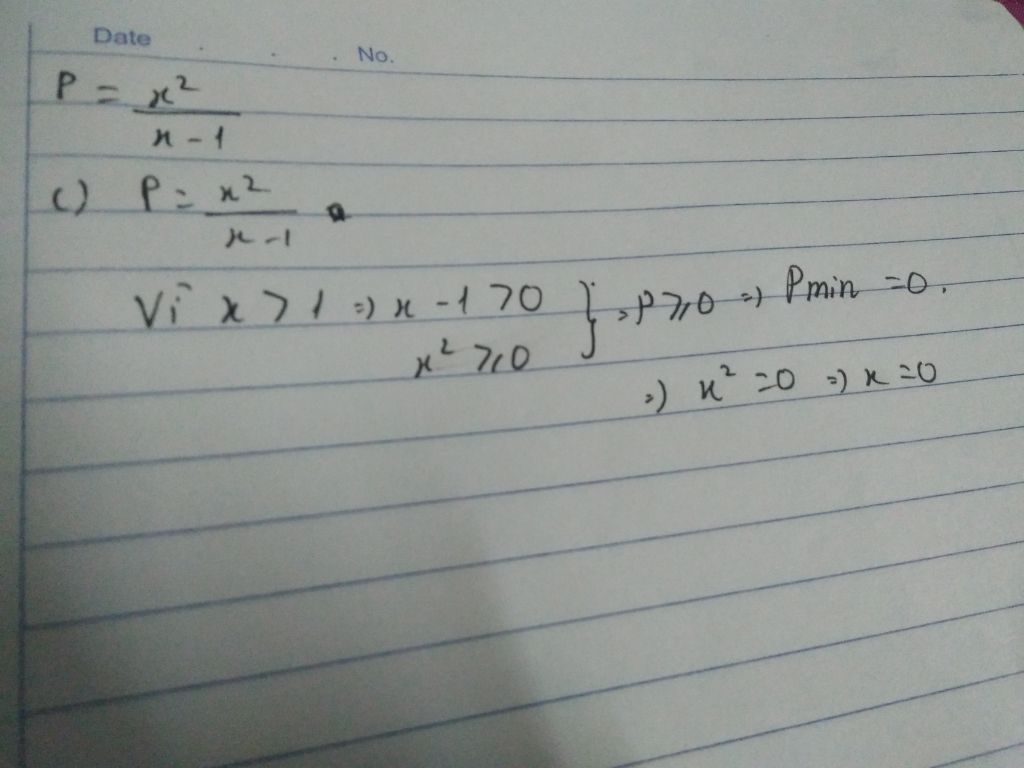 Date . . . No.
P = x²/x-1
c) P = x²/x-1
Vì x > 1 => x - 1 > 0 } => P ≥ 0 => Pmin = 0.
x² ≥ 0
=> x² = 0 => x = 0